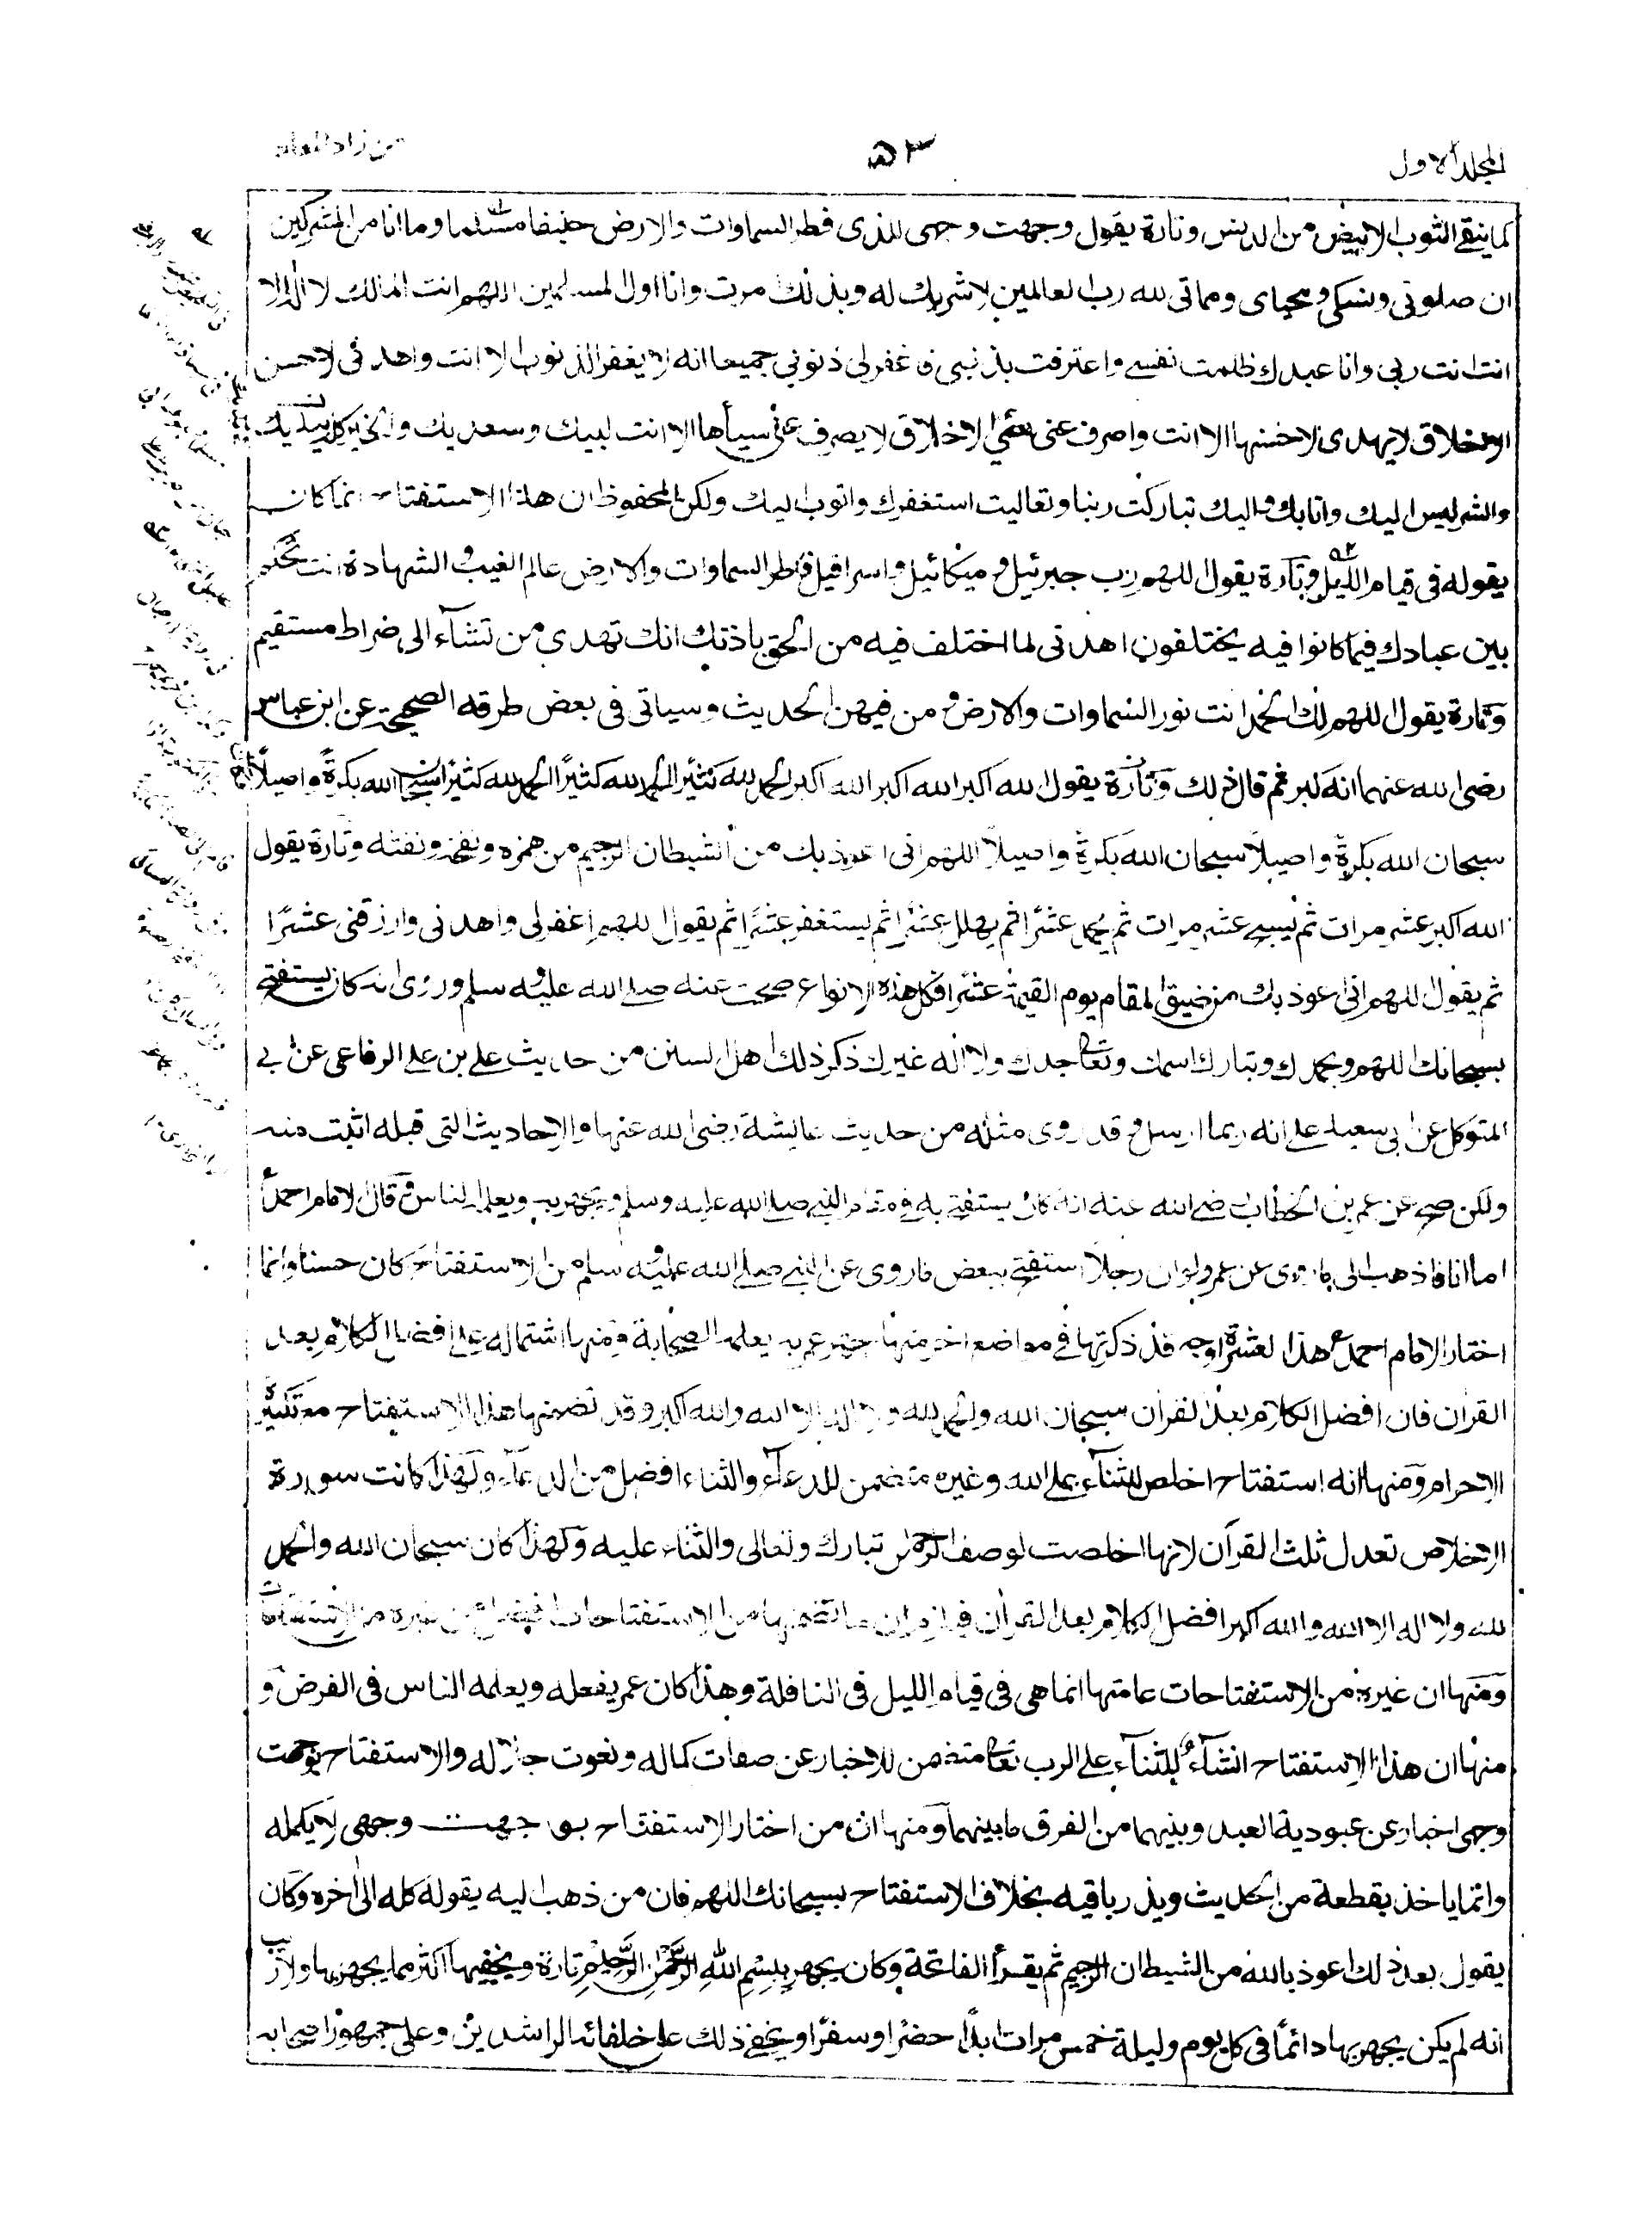 المجلد الاول
٥٣
من زاد المعاد
كما ينقى الثوب الابيض من الدنس وتارة يقول وجهت وجهى للذى فطر السماوات والارض حنيفا مسلما وما انا من المشركين
ان صلوتى ونسكى ومحياى ومماتى لله رب العالمين لا شريك له وبذلك امرت وانا اول المسلمين اللهم انت الملك لا اله الا
انت انت ربى وانا عبدك ظلمت نفسى واعترفت بذنبى فاغفر لى ذنوبى جميعا انه لا يغفر الذنوب الا انت واهدنى لاحسن
الاخلاق لا يهدى لاحسنها الا انت واصرف عنى سيئ الاخلاق لا يصرف عنى سيأها الا انت لبيك وسعديك والخير كله بيديك
والشر ليس اليك وانا بك واليك تباركت ربنا وتعاليت استغفرك واتوب اليك ولكن المحفوظ ان هذا الاستفتاح انما كان
يقوله فى قيام الليل وتارة يقول اللهم رب جبرئيل وميكائيل واسرافيل فاطر السماوات والارض عالم الغيب والشهادة انت تحكم
بين عبادك فيما كانوا فيه يختلفون اهدنى لما اختلف فيه من الحق باذنك انك تهدى من تشآء الى صراط مستقيم
وتارة يقول اللهم لك الحمد انت نور السماوات والارض ومن فيهن الحديث وسياتى فى بعض طرقه الصحيحة عن ابن عباس
رضى الله عنهما انه كبر ثم قال ذلك وتارة يقول الله اكبر الله اكبر الله اكبر الحمد لله كثيرا الحمد لله كثيرًا الحمد لله كثيرا سبحان الله بكرةً واصيلًا
سبحان الله بكرةً واصيلًا سبحان الله بكرةً واصيلًا اللهم انى اعوذ بك من الشيطان الرجيم من همزه ونفخه ونفثه وتارة يقول
الله اكبر عشر مرات ثم يسبح عشر مرات ثم يحمد عشرًا ثم يهلل عشرًا ثم يستغفر عشرًا ثم يقول اللهم اغفر لى واهدنى وارزقنى عشرًا
ثم يقول اللهم انى اعوذ بك من ضيق المقام يوم القيمة عشرا فكل هذه الانواع صحت عنه صلى الله عليه وسلم وروى انه كان يستفتح
بسبحانك اللهم وبحمدك وتبارك اسمك وتعالى جدك ولا اله غيرك ذكر ذلك اهل السنن من حديث على بن على الرفاعى عن ابى
المتوكل عن ابى سعيد على انه ربما ارسل وقد روى مثله من حديث عائشة رضى الله عنها والاحاديث التى قبله اثبت منه
ولكن صح عن عمر بن الخطاب رضى الله عنه انه كان يستفتح به فى مقام النبى صلى الله عليه وسلم ويجهر به ويعلمه الناس وقال الامام احمد
اما انا فاذهب الى ما روى عن عمر ولو ان رجلًا استفتح ببعض ما روى عن النبى صلى الله عليه وسلم من الاستفتاح كان حسنا وانما
اختار الامام احمد هذا لعشرة اوجه قد ذكرتها فى مواضع اخر منها جهر عمر به يعلمه الصحابة ومنها اشتماله على افضل الكلام بعد
القرآن فان افضل الكلام بعد القرآن سبحان الله والحمد لله ولا اله الا الله والله اكبر وقد تضمنها هذا الاستفتاح مع تكبيرة
الاحرام ومنها انه استفتاح اخلص للثنآء على الله وغيره متضمن للدعآء والثناء افضل من الدعآء ولهذا كانت سورة
الاخلاص تعدل ثلث القرآن لانها اخلصت لوصف الرحمن تبارك وتعالى والثناء عليه ولهذا كان سبحان الله والحمد
لله ولا اله الا الله والله اكبر افضل الكلام بعد القرآن فيلزم ان ما تضمنها من الاستفتاحات افضل من غيره من الاستفتاحات
ومنها ان غيره من الاستفتاحات عامتها انما هى فى قيام الليل فى النافلة وهذا كان عمر يفعله ويعلمه الناس فى الفرض و
منها ان هذا الاستفتاح انشآء للثنآء على الرب تعالى متضمن للاخبار عن صفات كماله ونعوت جلاله والاستفتاح بوجهت
وجهى اخبار عن عبودية العبد وبينهما من الفرق ما بينهما ومنها ان من اختار الاستفتاح بوجهت وجهى لا يكمله
وانما ياخذ بقطعة من الحديث ويذر باقيه بخلاف الاستفتاح بسبحانك اللهم فان من ذهب اليه يقوله كله الى اخره وكان
يقول بعد ذلك اعوذ بالله من الشيطان الرجيم ثم يقرأ الفاتحة وكان يجهر ببِسْمِ اللهِ الرَّحْمٰنِ الرَّحِيْمِ تارة ويخفيها اكثر مما يجهر بها ولا ريب
انه لم يكن يجهر بها دائمًا فى كل يوم وليلة خمس مرات ابدًا حضرًا وسفرًا ويخفى ذلك على خلفائه الراشدين وعلى جمهور اصحابه